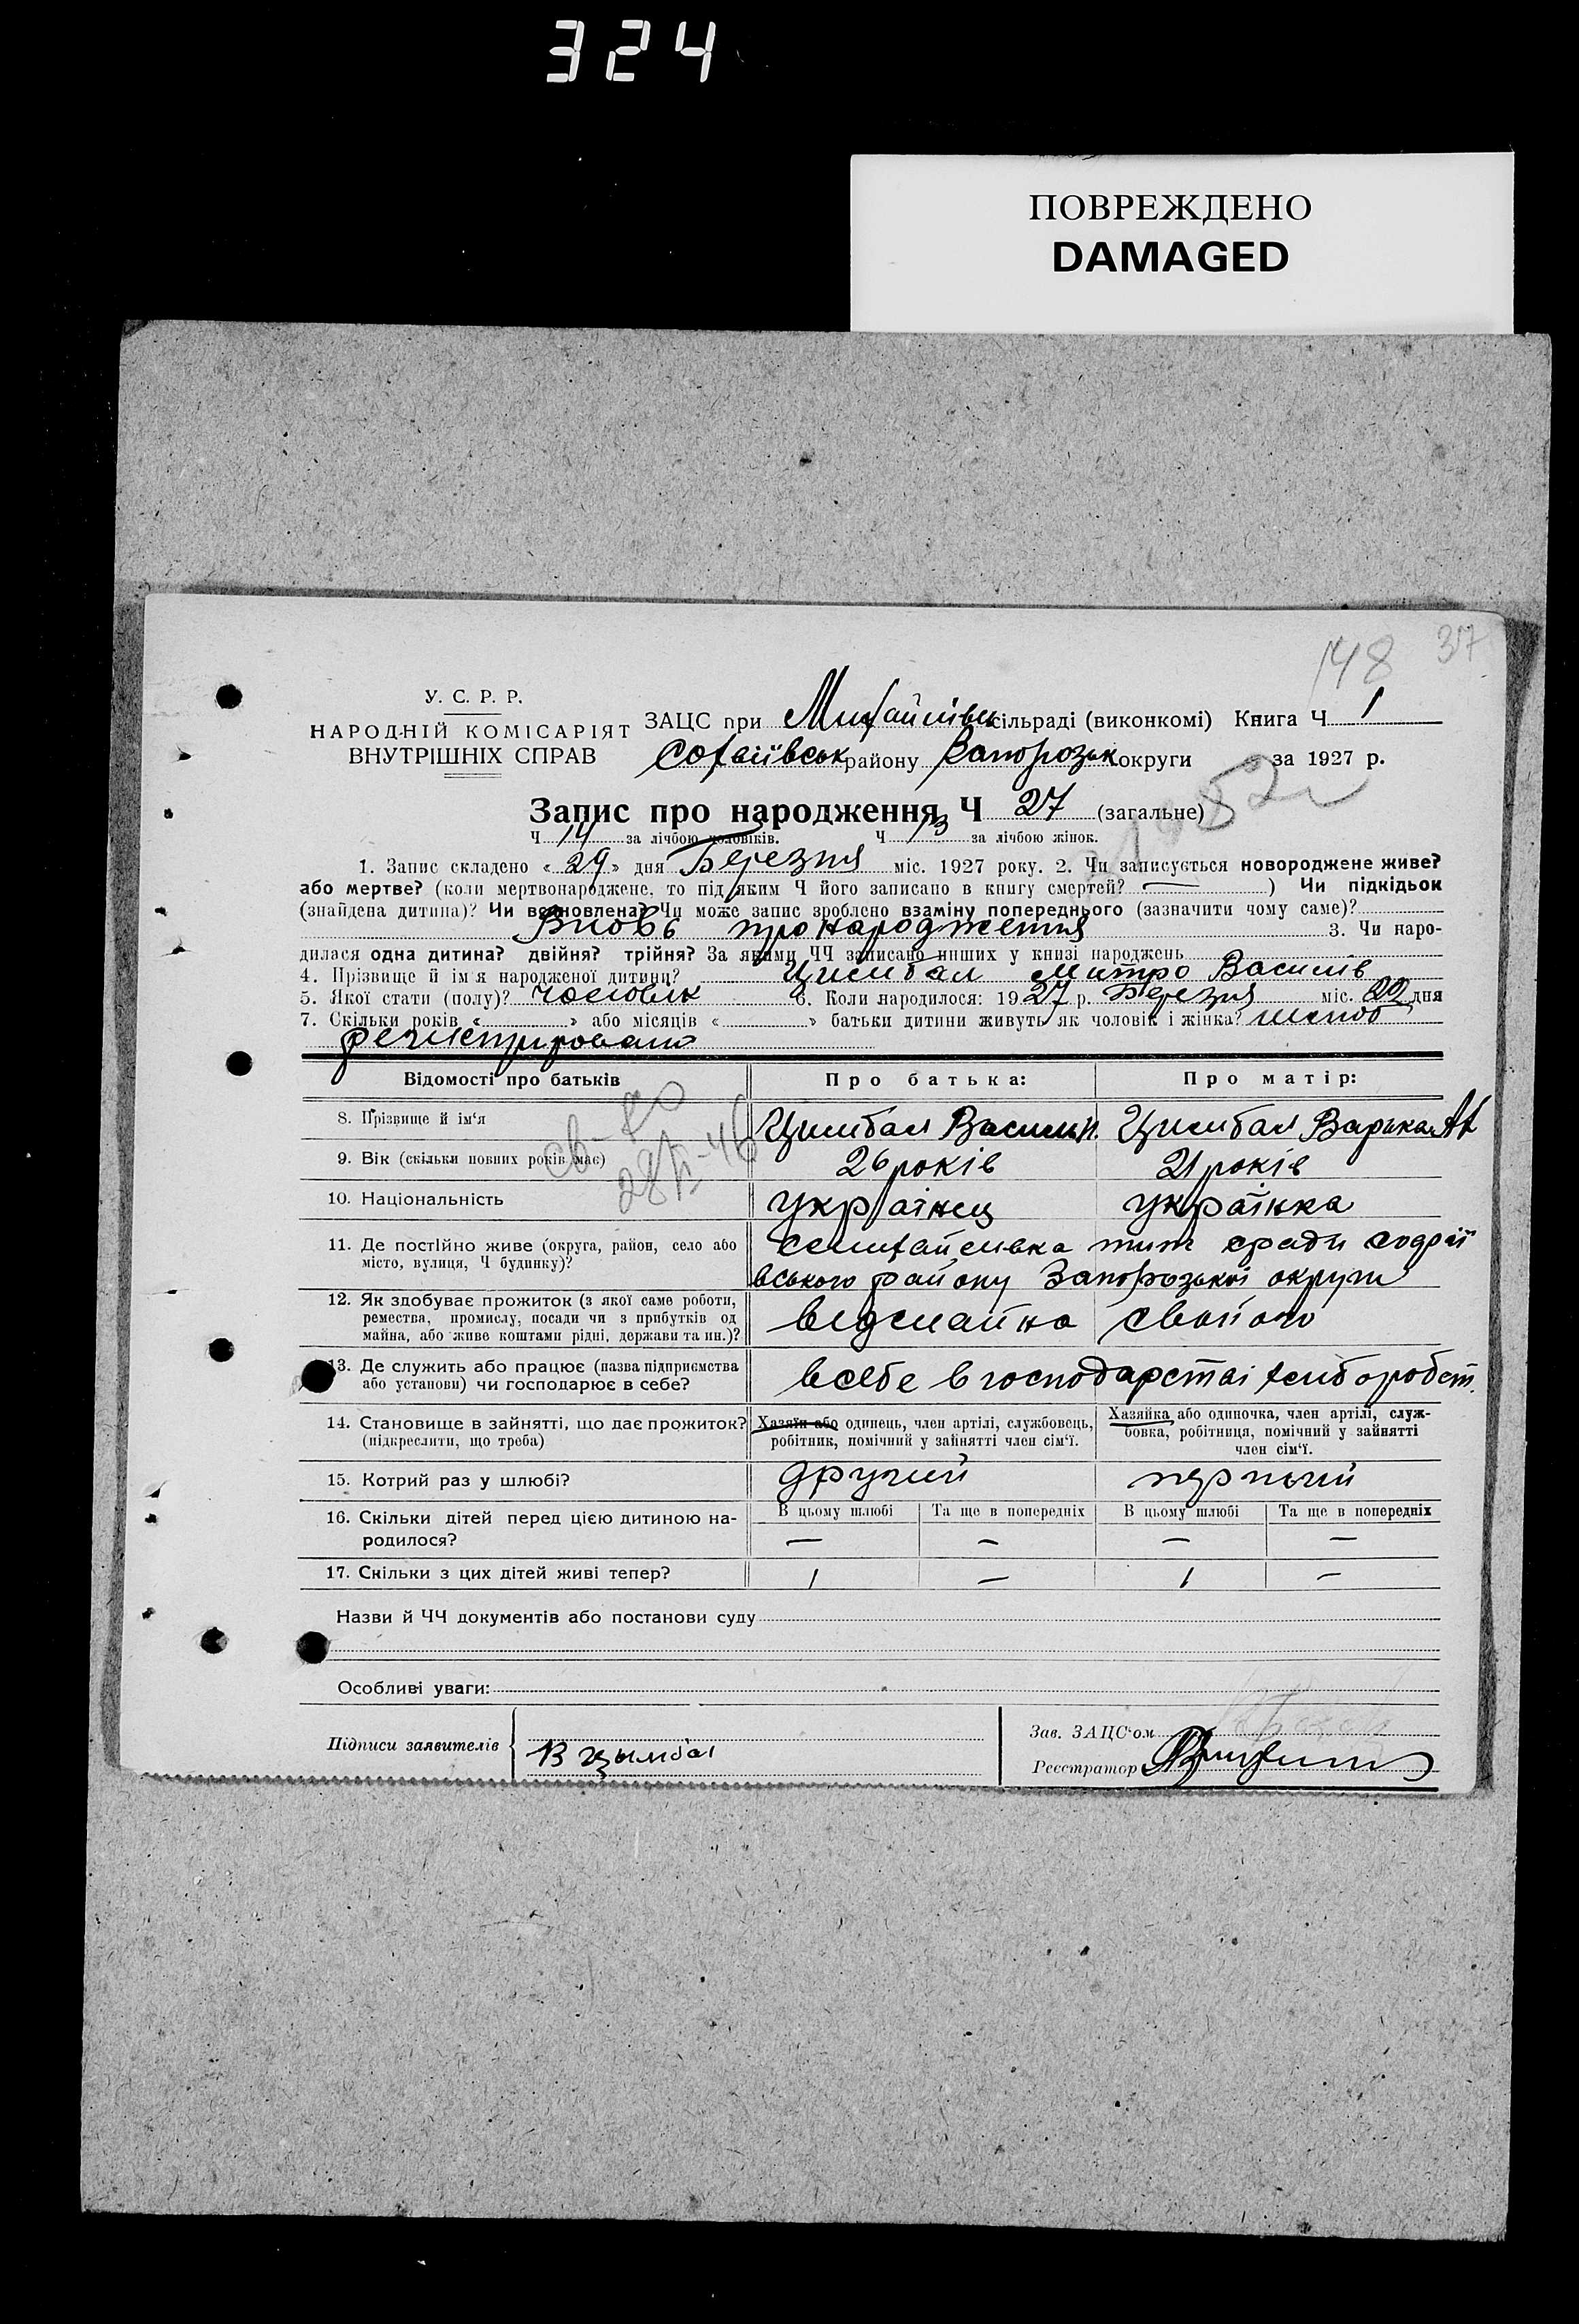 324
ПОВРЕЖДЕНО
DAMAGED
148 37
У. С. Р. Р.
НАРОДНІЙ КОМІСАРІЯТ
ВНУТРІШНІХ СПРАВ
ЗАЦС при Михайлівск сільраді (виконкомі) Книга Ч 1
Софіївськ району Запорозьк округи за 1927 р.
Запис про народження Ч 27 (загальне)
Ч 14 за лічбою чоловіків. Ч 13 за лічбою жінок.
1. Запис складено «29» дня Березня міс. 1927 року. 2. Чи записується новороджене живе?
або мертве? (коли мертвонароджене, то під яким Ч його записано в книгу смертей? — ) Чи підкідьок
(знайдена дитина)? Чи встановлена? Чи може запис зроблено взаміну попереднього (зазначити чому саме)?
Вновь про народження 3. Чи наро-
дилася одна дитина? двійня? трійня? За якими ЧЧ записано инших у книзі народжень
4. Прізвище й ім'я народженої дитини? Цимбал Митро Василів
5. Якої стати (полу)? чоловік 6. Коли народилося: 1927 р. Березня міс. 22 дня
7. Скільки років « » або місяців « » батьки дитини живуть як чоловік і жінка? шлюб
регистрировано
Відомості про батьків Про батька: Про матір:
8. Прізвище й ім'я Цимбал Василь Цимбал Варька
9. Вік (скільки повних років має) 26 років 21 років
28 VI-46
10. Національність українец українка
11. Де постійно живе (округа, район, село або
місто, вулиця, Ч будинку)?
вського району Запорозької округи
12. Як здобуває прожиток (з якої саме роботи,
ремества, промислу, посади чи з прибутків од
майна, або живе коштами рідні, держави та ин.)?
від майна свойого
13. Де служить або працює (назва підприємства
або установи) чи господарює в себе?
всебе в господарстві хлібороб
14. Становище в зайнятті, що дає прожиток?
(підкреслити, що треба)
Хазяїн або одинець, член артілі, службовець,
робітник, помічний у зайнятті член сім'ї.
Хазяйка або одиночка, член артілі, служ-
бовка, робітниця, помічний у зайнятті
член сім'ї.
15. Котрий раз у шлюбі? другий первый
16. Скільки дітей перед цією дитиною на-
родилося?
В цьому шлюбі Та ще в попередніх В цьому шлюбі Та ще в попередніх
— — — —
17. Скільки з цих дітей живі тепер? 1 — 1 —
Назви й ЧЧ документів або постанови суду
Особливі уваги:
Підписи заявителів В Цымбал
Зав. ЗАЦС'ом
Реєстратор